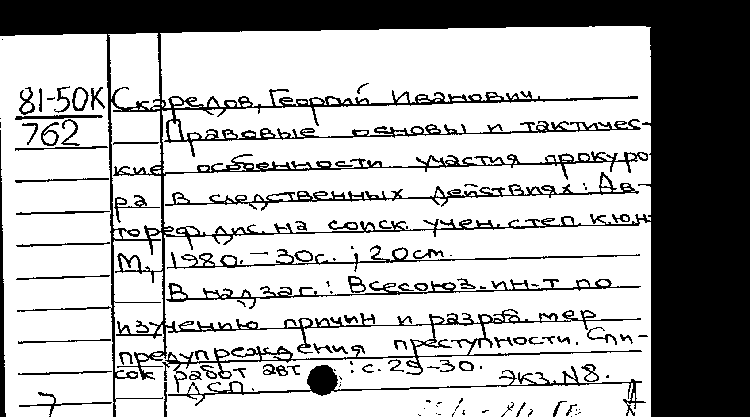 81-50К Скаредов, Георгий Иванович.
762 Правовые основы и тактичес-
кие особенности участия прокуро-
ра в следственных действиях: Ав-
тореф. дис. на соиск. учен. степ. к.ю.н.
М., 1980. - 30с.; 20см.
В надзаг.: Всесоюз. ин-т по
изучению причин и разраб. мер
предупреждения преступности. Спи-
сок работ авт : с. 29-30.
ДСП. Экз. N8.